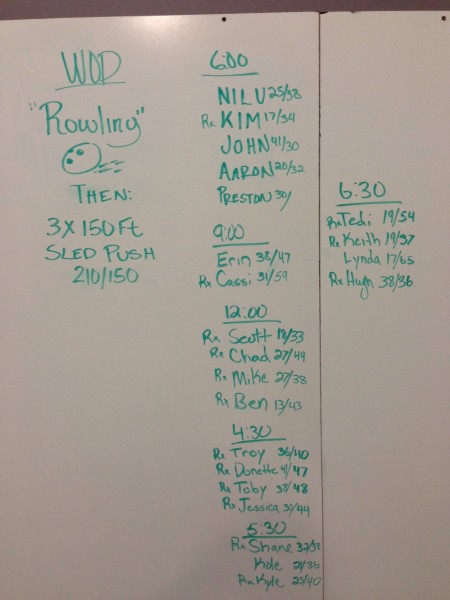 WOD
"Rowling"
THEN:
3 X 150 Ft
SLED PUSH
210/150
6:00
NILU 25/38
Rx KIM 17/34
JOHN 41/30
AARON 20/32
PRESTON 30/
9:00
Erin 38/47
Rx Cassi 31/59
12:00
Rx Scott 18/33
Rx Chad 27/44
Rx Mike 27/38
Rx Ben 13/43
4:30
Rx Troy 36/40
Rx Danette 41/47
Rx Toby 38/48
Rx Jessica 30/44
5:30
Rx Shane
Kole 21/36
Rx Kyle 25/40
6:30
Rx Tedi 19/54
Rx Keith 19/37
Lynda 17/65
Rx Hugh 38/36